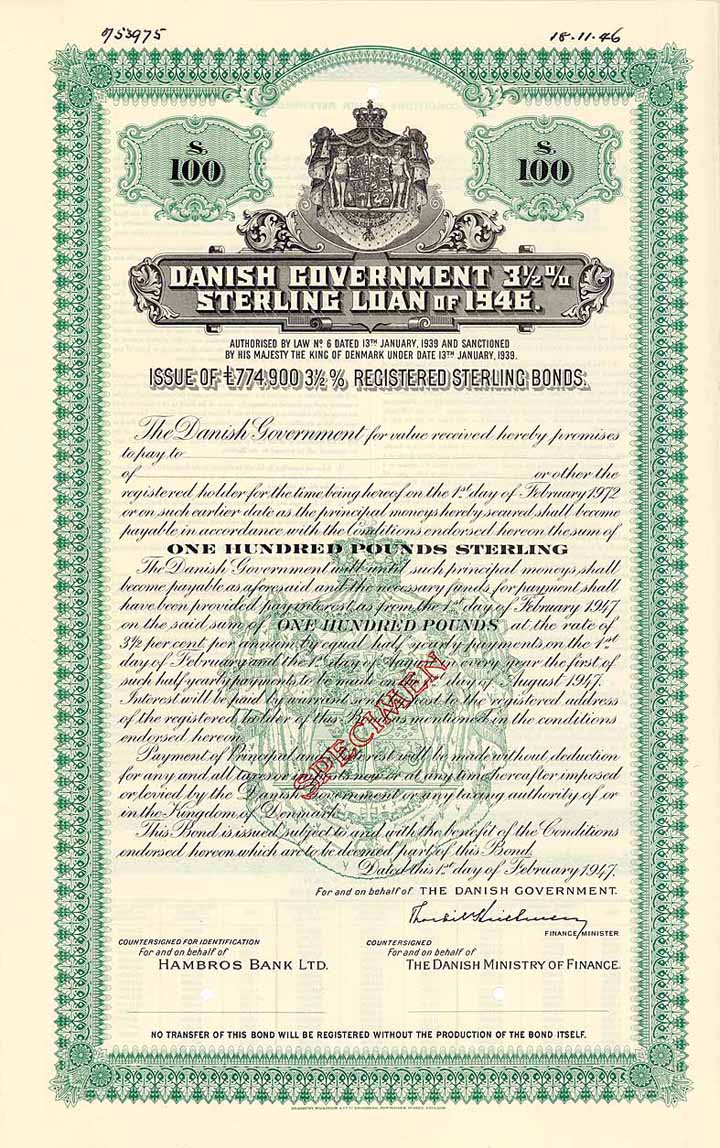 18.11.46
S.
100
S.
100
DANISH GOVERNMENT 3½%
STERLING LOAN OF 1946.
AUTHORISED BY LAW Nº 6 DATED 13TH JANUARY, 1939 AND SANCTIONED
BY HIS MAJESTY THE KING OF DENMARK UNDER DATE 13TH JANUARY, 1939.
ISSUE OF £774,900 3½% REGISTERED STERLING BONDS.
The Danish Government for value received hereby promises
to pay to
of or other the
registered holder for the time being hereof on the 1st day of February 1972
or on such earlier date as the principal moneys hereby secured shall become
payable in accordance with the Conditions endorsed hereon the sum of
ONE HUNDRED POUNDS STERLING
The Danish Government will until such principal moneys shall
become payable as aforesaid and the necessary funds for payment shall
have been provided pay interest as from the 1st day of February 1947
on the said sum of ONE HUNDRED POUNDS at the rate of
3½ per cent. per annum by equal half yearly payments on the 1st
day of February and the 1st day of August in every year the first of
such half-yearly payments to be made on the 1st day of August 1947.
Interest will be paid by warrant sent by post to the registered address
of the registered holder of this Bond as mentioned in the conditions
endorsed hereon.
Payment of Principal and Interest will be made without deduction
for any and all taxes or imposts now or at any time hereafter imposed
or levied by the Danish Government or any taxing authority of or
in the Kingdom of Denmark.
This Bond is issued subject to and with the benefit of the Conditions
endorsed hereon which are to be deemed part of this Bond.
Dated this 1st day of February 1947.
SPECIMEN
For and on behalf of THE DANISH GOVERNMENT.
FINANCE MINISTER
COUNTERSIGNED FOR IDENTIFICATION
For and on behalf of
HAMBROS BANK LTD.
COUNTERSIGNED
For and on behalf of
THE DANISH MINISTRY OF FINANCE.
NO TRANSFER OF THIS BOND WILL BE REGISTERED WITHOUT THE PRODUCTION OF THE BOND ITSELF.